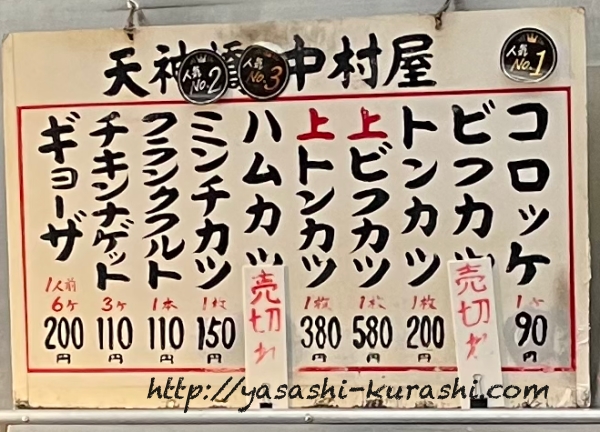 天神橋 中村屋
人気No.1
人気No.2
人気No.3
コロッケ 1ヶ 90円
ビフカツ 売切れ
トンカツ 1枚 200円
上ビフカツ 1枚 580円
上トンカツ 1枚 380円
ハムカツ 売切れ
ミンチカツ 1枚 150円
フランクフルト 1本 110円
チキンナゲット 3ヶ 110円
ギョーザ 1人前 6ヶ 200円
http://yasashi-kurashi.com